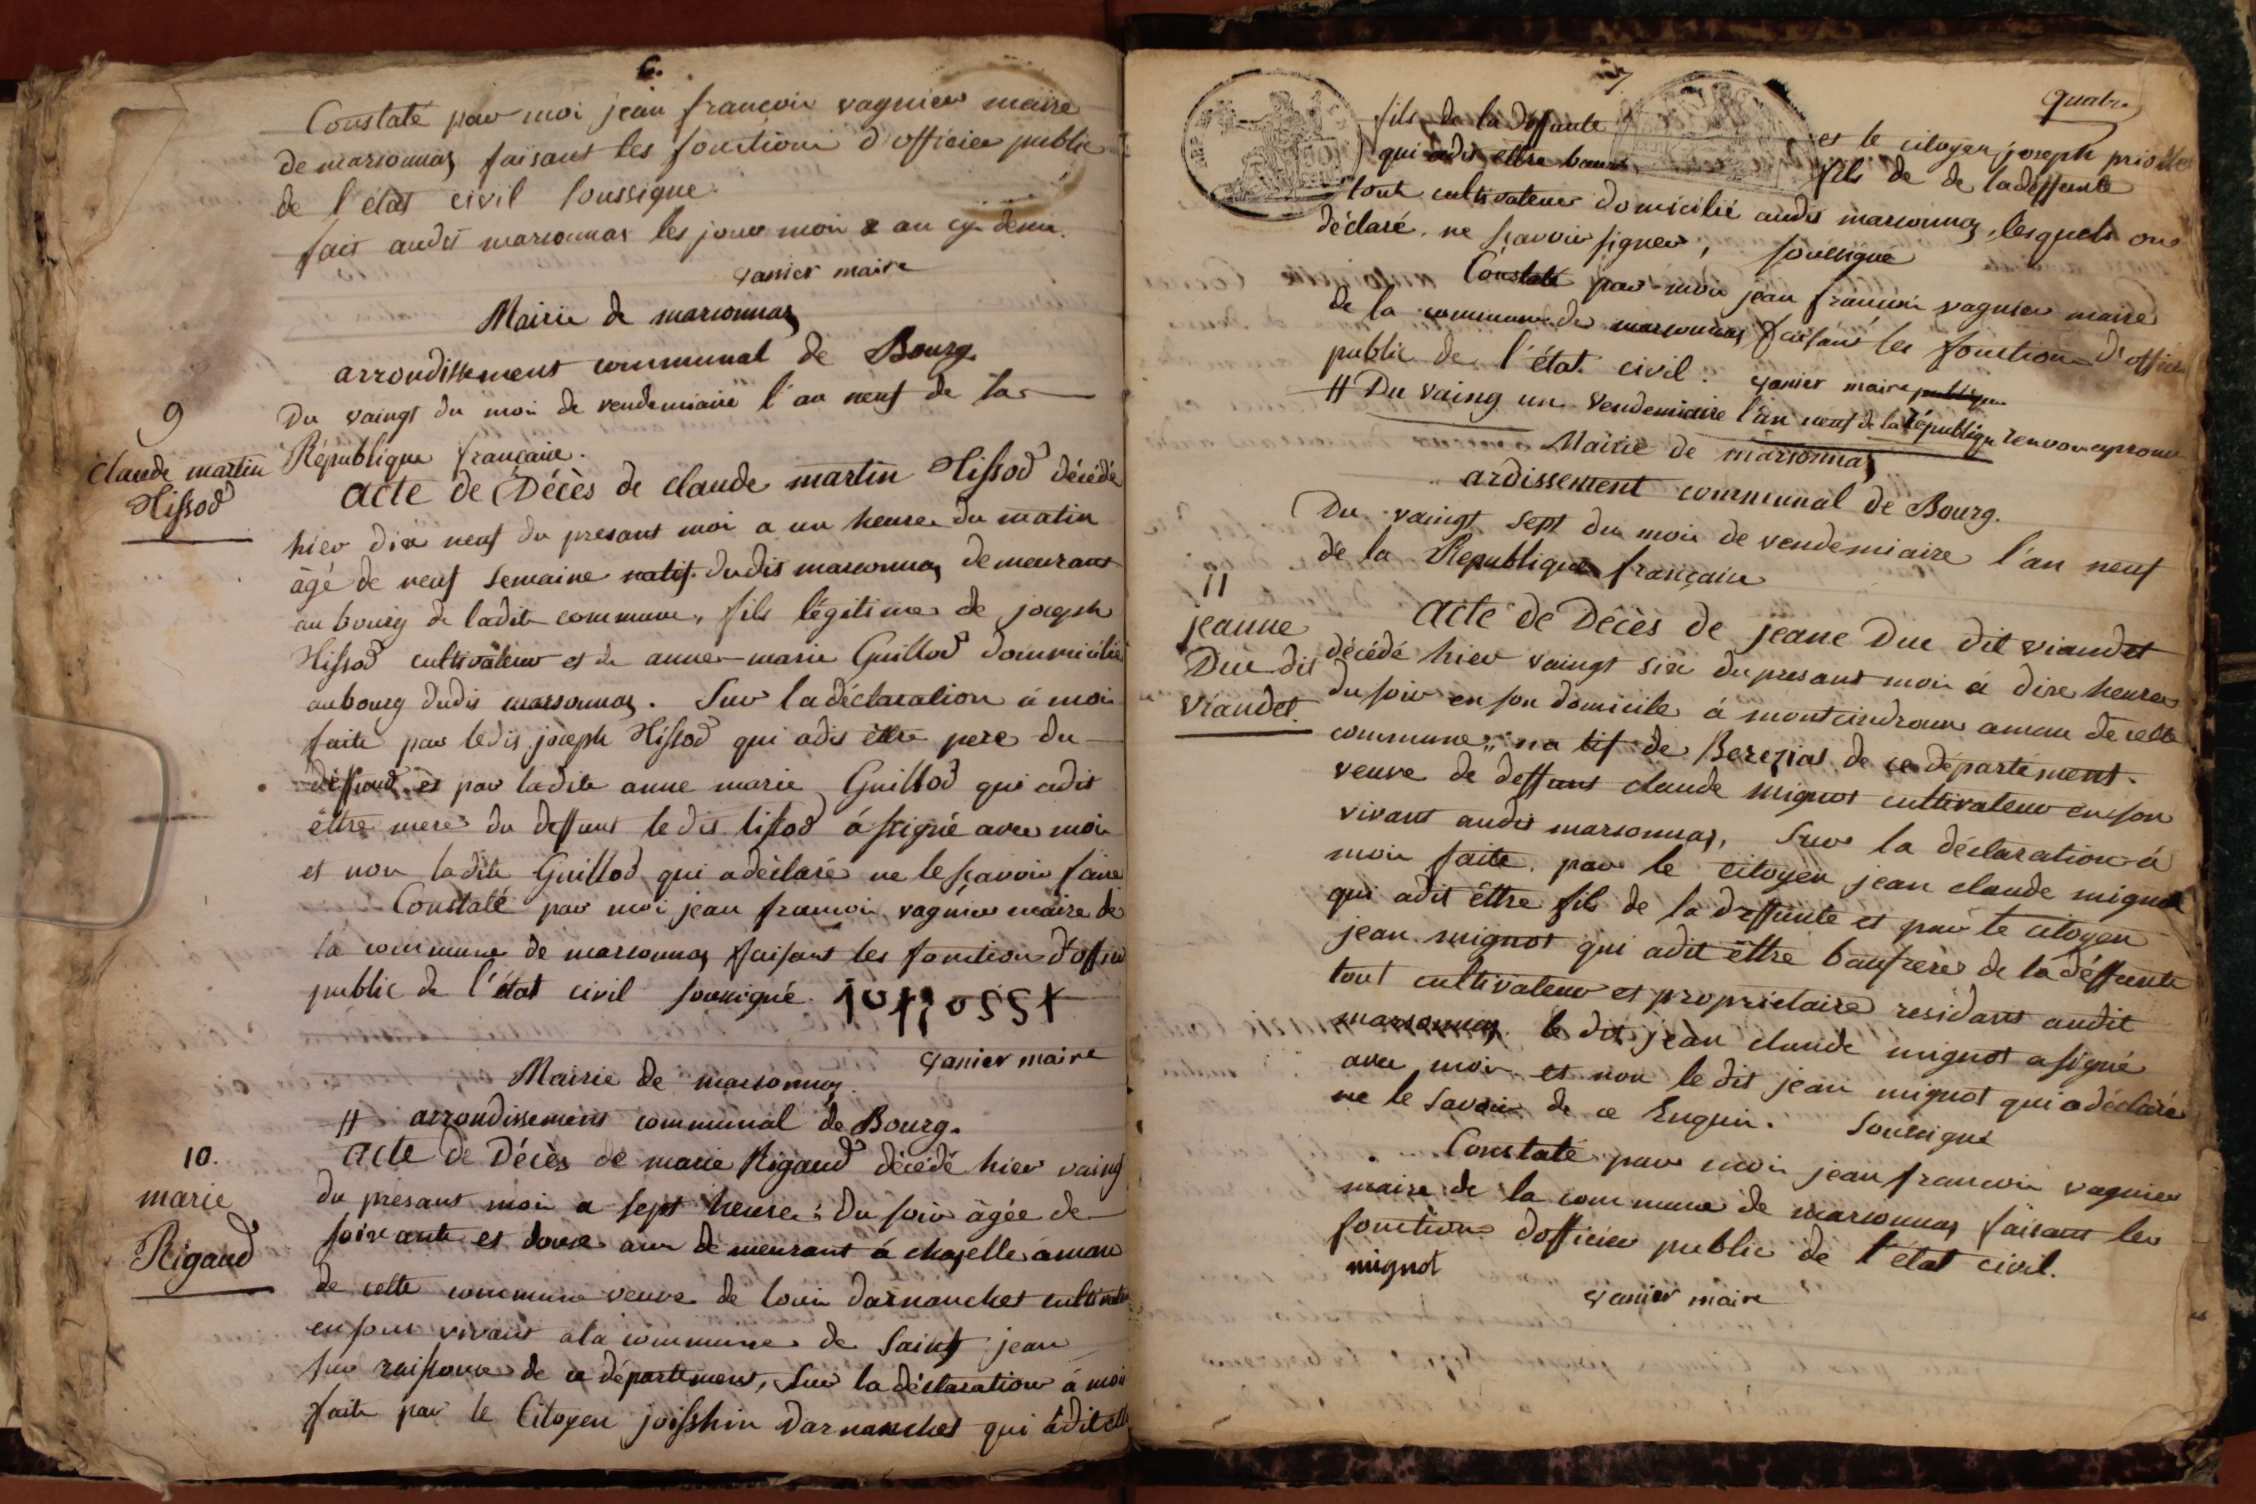 6.
Constaté par moi jean francois vagnier maire
de marsonnas faisant les fonctions d'officier public
de l'état civil soussigné.
fait audit marsonnas les jour moi & an cy denn.
vanier maire
Mairie de marsonnas
arrondissement communal de Bourg.
Du vaingt du moi de vendemiaire l'an neuf de la
République française.
9
Claude martin
Tissod
acte de Décès de claude martin Tissod décédé
hier dix neuf du presant moi a un heure du matin
âgé de neuf semaine natif dudit marsonnas demeurant
au bourg de ladite commune, fils légitime de joseph
Tissod cultivateur et de anne-marie Guillod dommicilié
au bourg dudit marsonnas. Sur la déclaration à moi
faite par ledit joseph Tissod qui a dit être pere du
deffund et par ladite anne marie Guillod qui a dit
être mere du deffunt ledit tissod a signé avec moi
et non ladite Guillod qui a déclaré ne le sçavoir faire
Constaté par moi jean francois vagnier maire de
la commune de marsonnas faisant les fonction d'officier
public de l'état civil soussigné.
vanier maire
Mairie de marsonnas.
# arrondissement communal de Bourg.
10.
marie
Rigaud
acte de Décès de marie Rigaud décédé hier vaingt
du presant moi a sept heure du soir âgée de
soixante et douze ans demeurant á chaselle amau
de cette commune veuve de louis Darnanches cultivateur
en son vivant a la commune de Saint jean
sur raisouse de ce département, Sur la déclaration à moi
faite par le Citoyen Darnanches qui a dit être
7
quatre
fils de la deffunte et le citoyen joseph
qui a dit être fils de de la deffunte
tout cultivateur domicilié audit marsonnas, lesquels ont
déclaré ne sçavoir signer, soussigné
Constaté par moi jean francois vagnier maire
de la commune de marsonnas faisant les fonction d'officier
public de l'état civil. vanier maire
# Du vaing un vendemiaire l'an neuf de la République renvoi approuvé
Mairie de marsonnas
ardissement communal de Bourg.
Du vaingt sept du moi de vendemiaire l'an neuf
de la République française
11
jeanne
Duc dit
viandet.
acte de Décès de jeane Duc dit viandet
décédé hier vaingt six du presant moi á dixe heures
du soir en son domicile á amau de cette
commune, natif de Bereziat de ce département.
veuve de deffunt claude mignot cultivateur en son
vivant audit marsonnas, Sur la déclaration á
moi faite par le citoyen jean claude mignot
qui a dit être fils de la deffunte et par le citoyen
jean mignot qui a dit être baufrere de la déffunte
tout cultivateur et proprietaire residant audit
marsonnas le dit jean claude mignot a signé
avec moi et non le dit jean mignot qui a déclaré
ne le savoir de ce Enquin. soussigné
Constaté par moi jean francois vagnier
maire de la commune de marsonnas faisant les
fonction d'officier public de l'état civil.
mignot
vanier maire